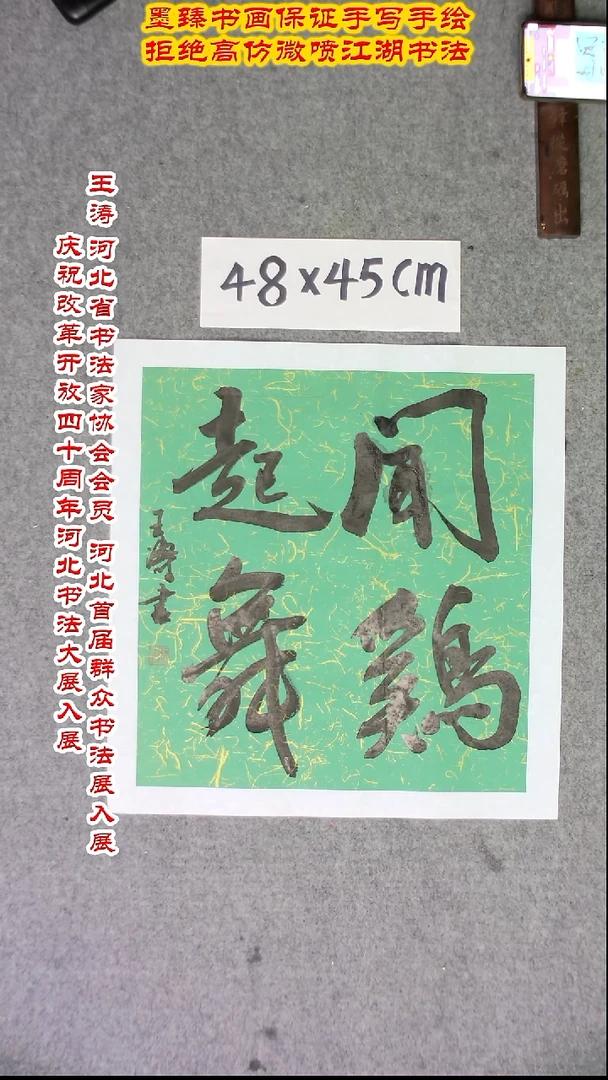 墨臻书画保证手写手绘
拒绝高仿微喷江湖书法
王涛 河北省书法家协会会员 河北首届群众书法展入展
庆祝改革开放四十周年河北书法大展入展
48x45cm
闻鸡
起舞
王涛书